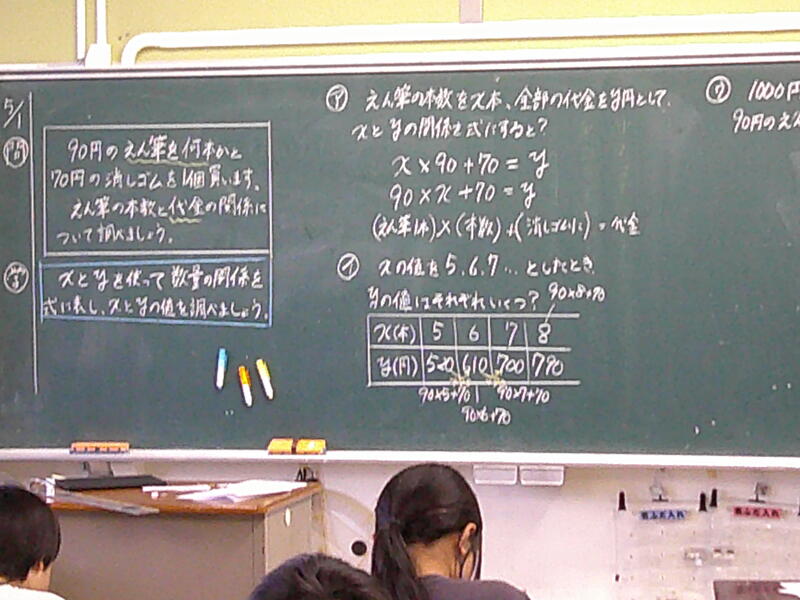 5/1
問
90円のえん筆を何本かと
70円の消しゴムを1個買います。
えん筆の本数と代金の関係に
ついて調べましょう。
学
xとyを使って数量の関係を
式に表し、xとyの値を調べましょう。
ア えん筆の本数をx本、全部の代金をy円として、
xとyの関係を式にすると?
x×90+70=y
90×x+70=y
(えん筆1本)×(本数)+(消しゴム1こ)=代金
イ xの値を5、6、7…としたとき、
yの値はそれぞれいくつ? 90×8+70
x(本) 5 6 7 8
y(円) 520 610 700 790
90×5+70 90×7+70
90×6+70
ウ 1000円
90円のえん